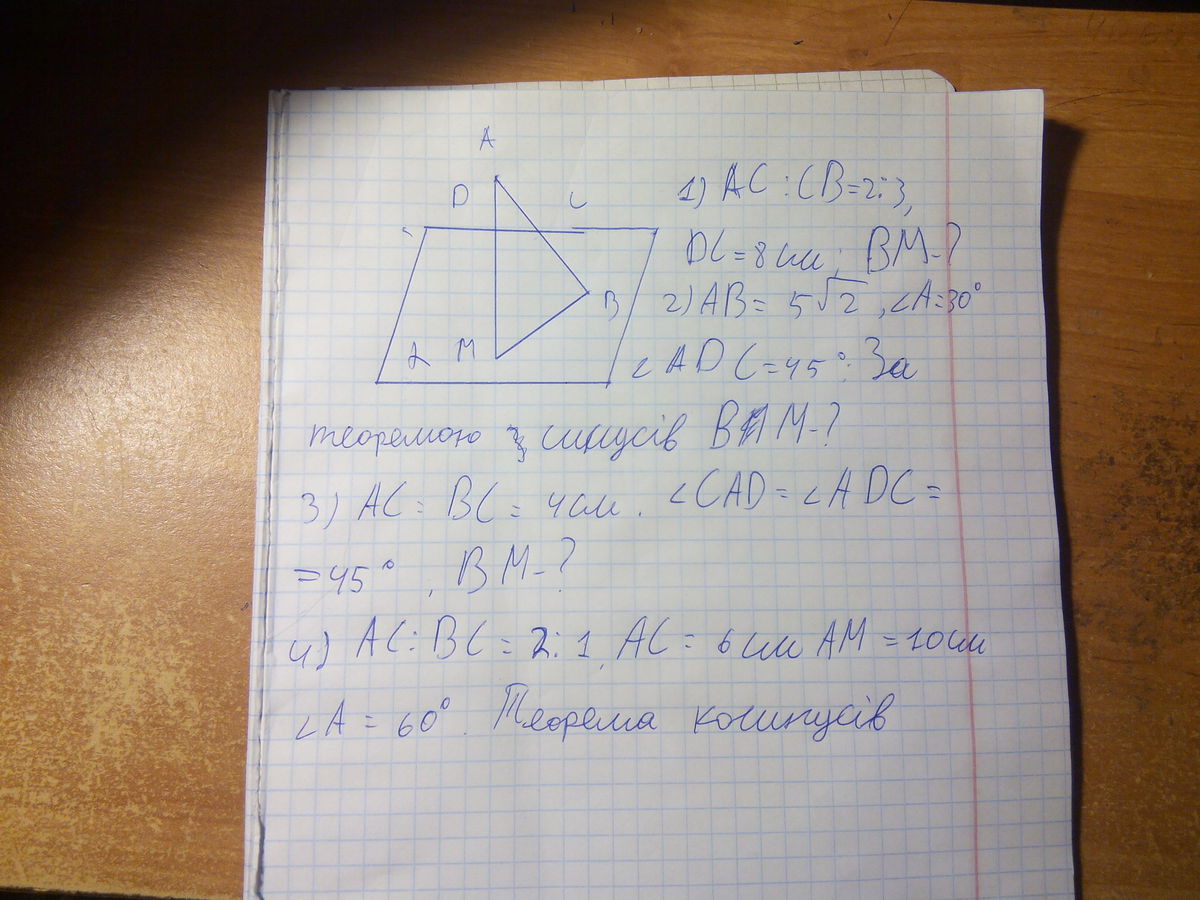 A
D
C
B
M
α
1) AC : CB = 2:3,
DC = 8 см; BM - ?
2) AB = 5√2, ∠A = 30°
∠ADC = 45°. За
теоремою синусів BM - ?
3) AC = BC = 4 см. ∠CAD = ∠ADC =
= 45°, BM - ?
4) AC : BC = 2:1, AC = 6 см AM = 10 см
∠A = 60°. Теорема косинусів